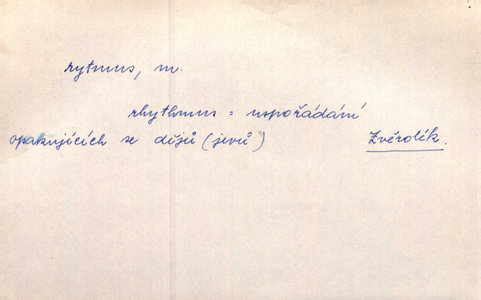 rytmus, m.
rhythmus = uspořádání
opakujících se dějů (jevů)
Zvěrolék.